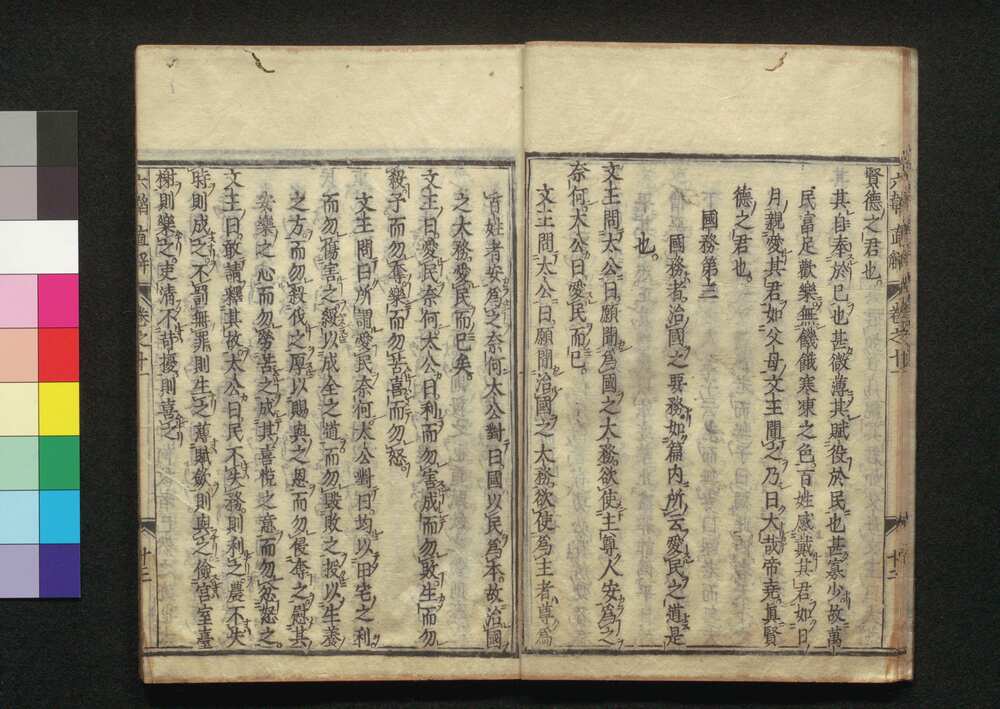 賢德之君也
其自奉於己也甚微薄其賦役於民也甚寡少故萬
民富足歡樂無饑餓寒凍之色百姓感戴其君如日
月親愛其君如父母文王聞之乃曰大哉帝堯眞賢
德之君也
國務第三
國務者治國之要務如篇内所云愛民之道是
也
文王問太公曰願聞爲國之大務欲使主尊人安爲之
奈何太公曰愛民而已
文王問太公曰願聞治國之大務欲使爲主者尊爲
百姓者安爲之奈何太公對曰國以民爲本故治國
之大務愛民而已矣
文王曰愛民奈何太公曰利而勿害成而勿敗生而勿
殺予而勿奪樂而勿苦喜而勿怒
文王問曰所謂愛民奈何太公對曰均以田宅之利
而勿傷害之殺以成全之道而勿毀敗之授以生養
之方而勿殺伐之厚以賜與之恩而勿侵奪之慰其
安樂之心而勿勞苦之成其喜悅之意而勿忿怒之
文王曰敢請釋其故太公曰民不失務則利之農不失
時則成之不罰無罪則生之薄賦斂則與之儉宮室臺
榭則樂之吏清不苛擾則喜之
六韜直解
卷之十
十二